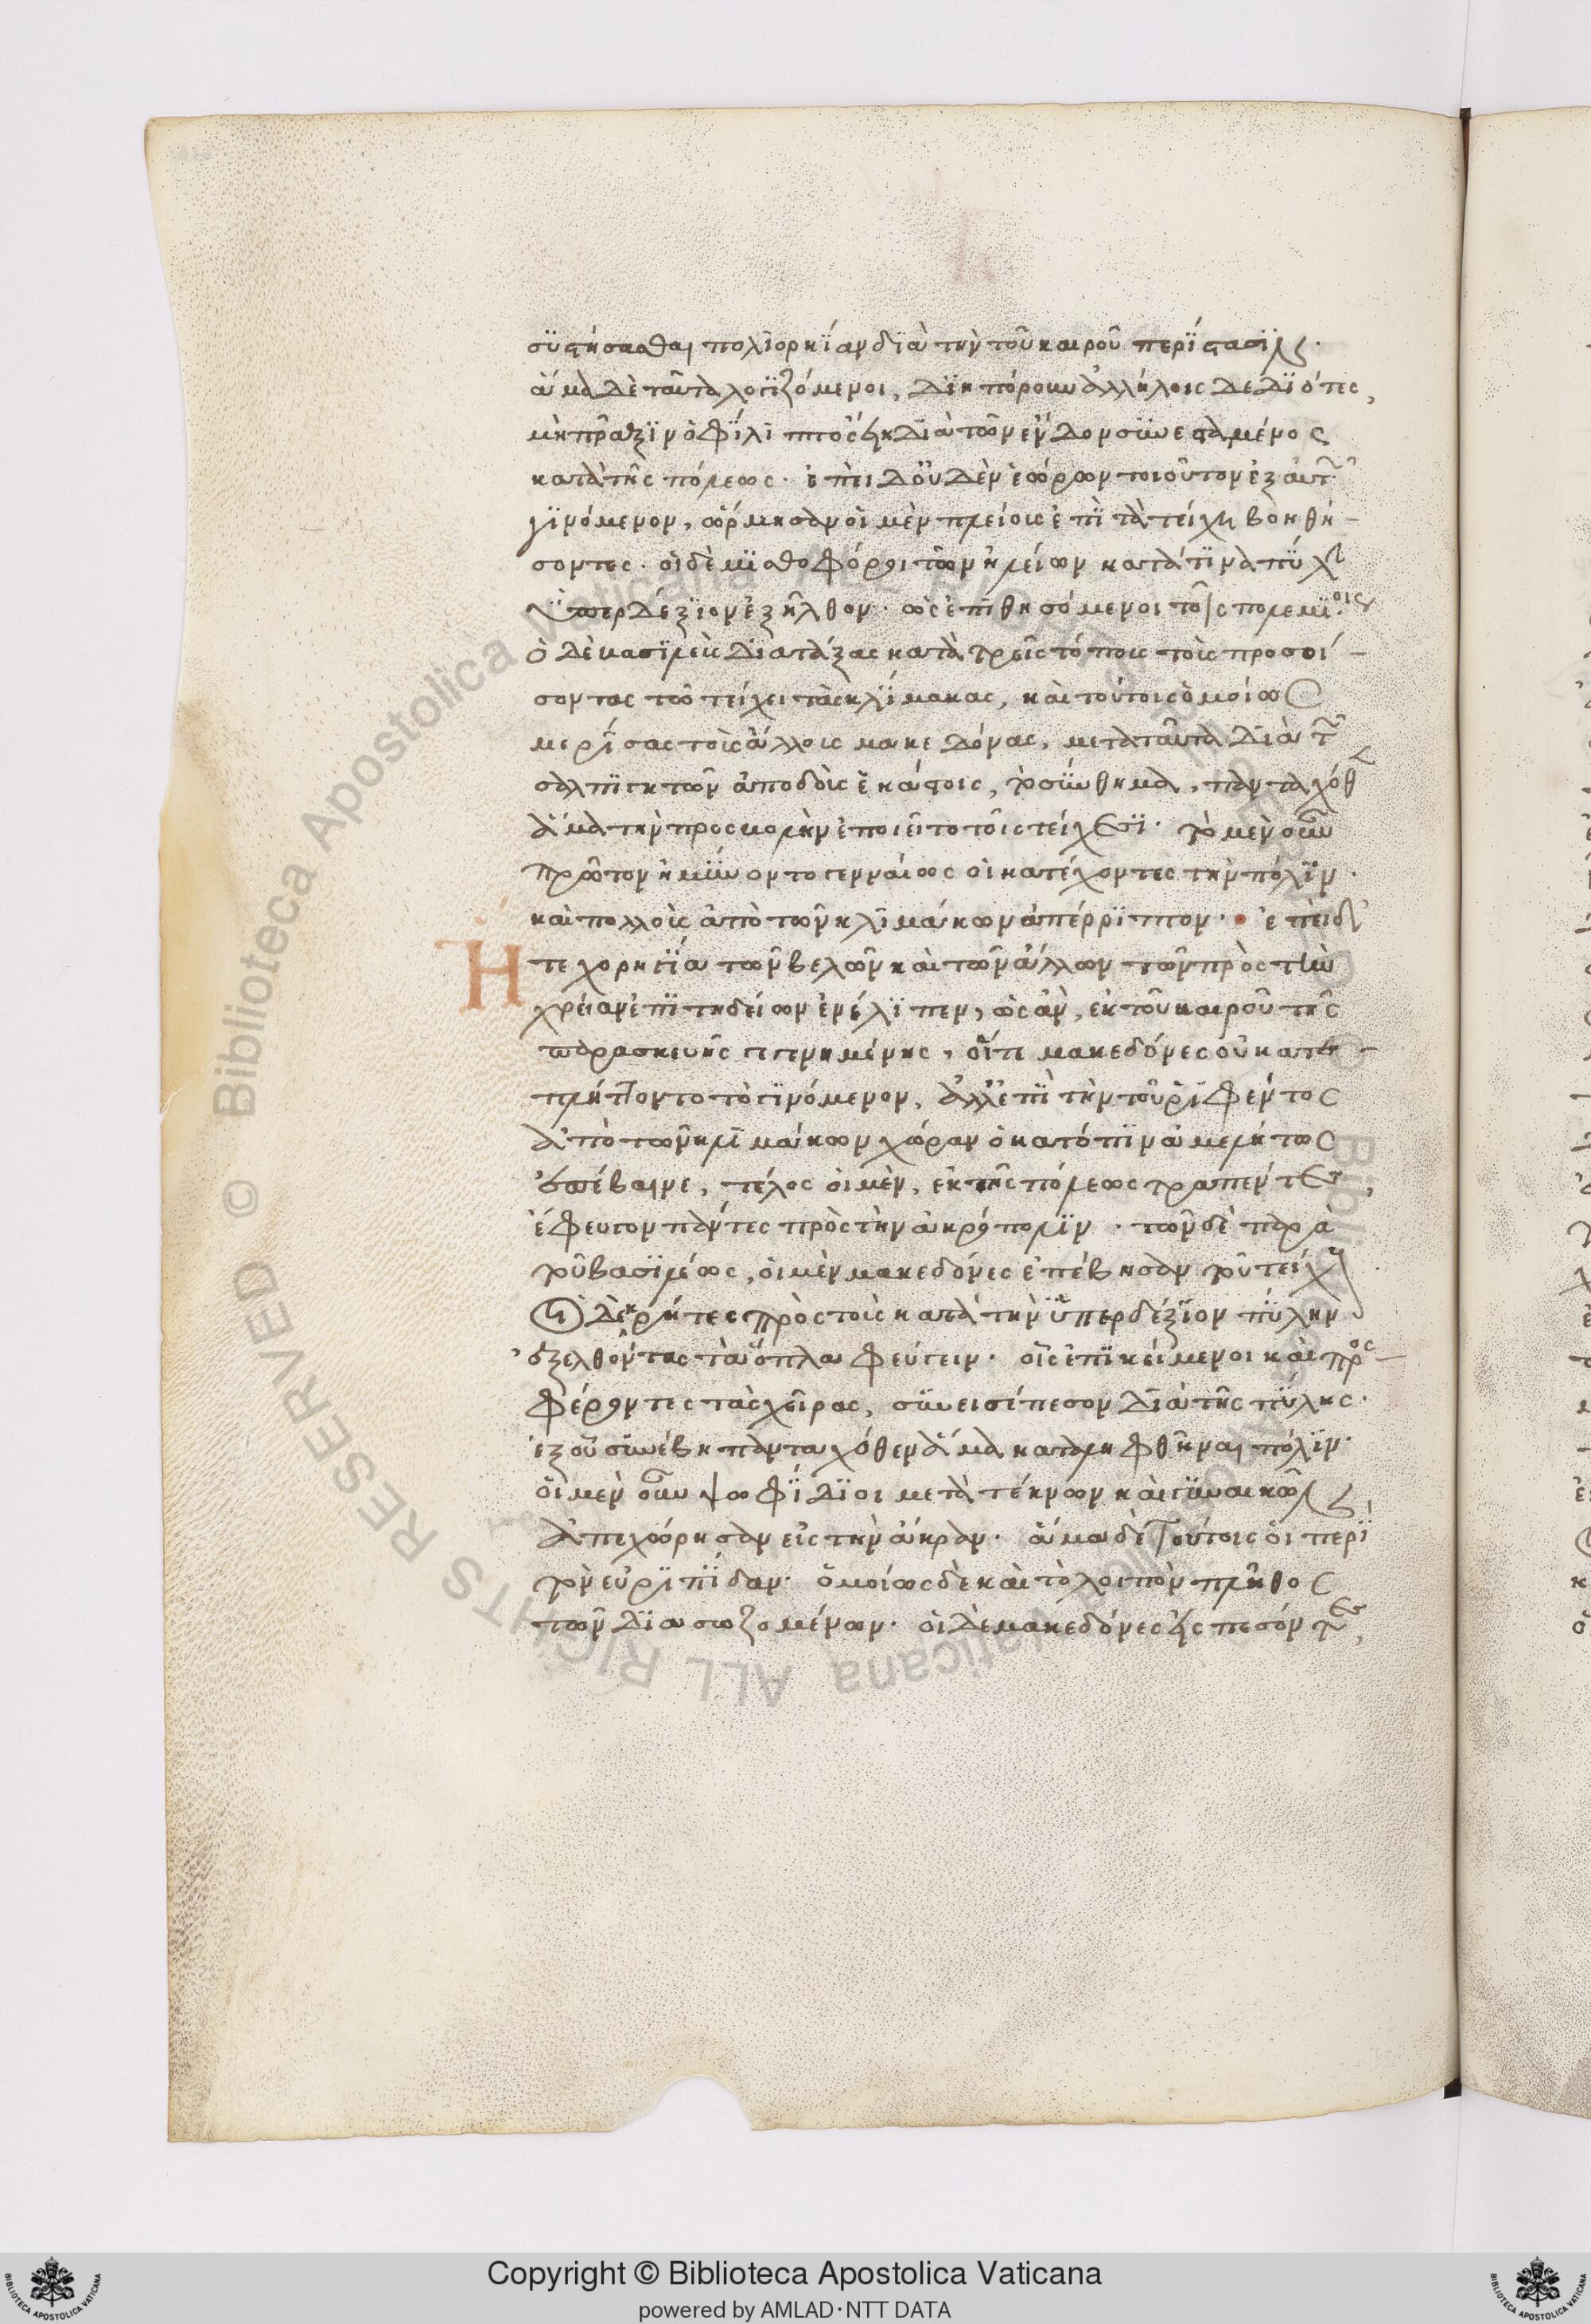 συστήσασθαι πολϊορκϊαν δϊὰ τὴν τοῦ καιροῦ περίστασϊν·
ἅμα δὲ ταῦτα λογϊζόμενοι, δϊηπόρουν ἀλλήλοις δεδϊότες,
μὴ πρᾶξϊν ὁ φΐλϊππος ᾖ δϊὰ τῶν ἔνδον συνεσταμένος
κατὰ τῆς πόλεως· ἐπεὶ δ' οὐδὲν ἑώρων τοιοῦτον ἐξ αὐτῶν
γϊνόμενον, ὥρμησαν οἱ μὲν πλείους ἐπὶ τὰ τείχη βοηθή-
σοντες· οἱ δὲ μϊσθοφόροι τῶν ἠλείων κατά τϊνα πύλην
ὑπερδέξϊον ἐξῆλθον· ὡς ἐπϊθησόμενοι τοῖς πολεμίοις
ὁ δὲ βασϊλεὺς δϊατάξας κατὰ τρεῖς τόπους τοὺς προσοί-
σοντας τῶ τείχει τὰς κλΐμακας, καὶ τούτοις ὁμοίως
μερΐσας τοὺς ἄλλους μακεδόνας, μετὰ ταῦτα δϊὰ τῶν
σαλπϊγκτῶν ἀποδοὺς ἑκάστοις, τὸ σύνθημα, πανταχόθεν
ἅμα τὴν προσβολὴν ἐποιεῖτο τοῖς τείχεσϊ· τὸ μὲν οὖν
πρῶτον ἠμύνοντο γενναίως οἱ κατέχοντες τὴν πόλϊν·
καὶ πολλοὺς ἀπὸ τῶν κλϊμάκων ἀπέρρϊπτον· ἐπεὶ δ'
Ἥ τε χορηγΐα τῶν βελῶν καὶ τῶν ἄλλων τῶν πρὸς τὴν
χρείαν ἐπϊτηδείων ἐνέλϊπεν, ὡς ἂν, ἐκ τοῦ καιροῦ τῆς
παρασκευῆς γεγενημένης, οἵ τε μακεδόνες οὐ κατε-
πλήττοντο τὸ γϊνόμενον, ἀλλ' ἐπὶ τὴν τοῦ ῥϊφέντος
ἀπὸ τῶν κλϊμάκων χώραν ὁ κατόπϊν ἀμελήτως
ἐπέβαινε, τέλος οἱ μὲν, ἐκ τῆς πόλεως τραπέντες,
ἔφευγον πάντες πρὸς τὴν ἀκρόπολϊν · τῶν δὲ παρὰ
τοῦ βασϊλέως, οἱ μὲν μακεδόνες ἐπέβησαν τοῦ τείχους
οἱ δὲ κρῆτες πρὸς τοὺς κατὰ τὴν ὑπερδέξϊον πύλην
ἐξελθόντας τὰ ὅπλα φεύγειν· οἷς ἐπϊκείμενοι καὶ προσ-
φέροντες τὰς χεῖρας, συνεισέπεσον δϊὰ τῆς πύλης·
ἐξ οὗ συνέβη πανταχόθεν ἅμα καταληφθῆναι πόλϊν·
οἱ μὲν οὖν ψωφΐδϊοι μετὰ τέκνων καὶ γυναικῶν
ἀπεχώρησαν εἰς τὴν ἄκραν· ἅμα δὲ τούτοις οἱ περὶ
τὸν εὐρϊπΐδαν· ὁμοίως δὲ καὶ τὸ λοιπὸν πλῆθος
τῶν δϊασωζομένων· οἱ δὲ μακεδόνες εἰσπεσόντες,